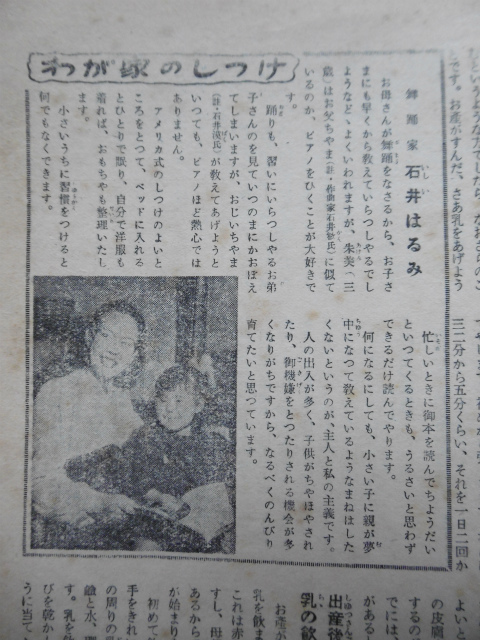 とです。お産がすんだ、さあ乳をあげよう
三二分から五分くらい、それを一日二回か
わが家のしつけ
舞踊家 石井はるみ
お母さんが舞踊をなさるから、お子さ
まにも早くから教えていらつしやるでし
ようなど、よくいわれますが、朱美(三
歳)はお父ちやま(註・作曲家石井歓氏)に似て
いるのか、ピアノをひくことが大好きで
す。
踊りも、習いにいらつしやるお弟
子さんのを見ていつのまにかおぼえ
てしまいますが、おじいちやま
(註・石井漠氏)が教えてあげようと
いつても、ピアノほど熱心では
ありません。
アメリカ式のしつけのよいと
ころをとつて、ベッドに入れる
とひとりで眠り、自分で洋服も
着れば、おもちやも整理いたし
ます。
小さいうちに習慣をつけると
何でもなくできます。
忙しいときに御本を読んでちようだい
といつてくるときも、うるさいと思わず
できるだけ読んでやります。
何になるにしても、小さい子に親が夢
中になつて教えているようなまねはした
くないというのが、主人と私の主義です。
人の出入が多く、子供がちやほやされ
たり、御機嫌をとつたりされる機会が多
くなりがちですから、なるべくのんびり
育てたいと思つています。
よい
の皮膚
するの
でには
がある
出産後
乳の飲
お産が
乳を飲ま
これは赤
すし、母
あるから
が始まり
初めて
手をきれ
の周りの
鹼と水、
す。乳を
びを乾か
うに当てい